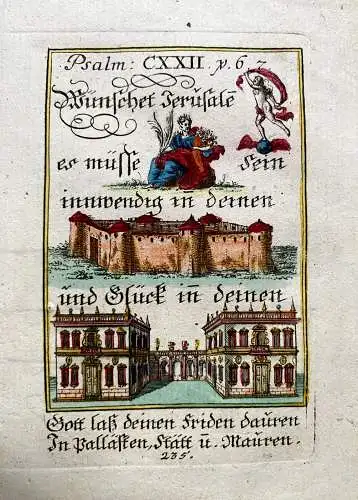 Psalm: CXXII. v. 6 7
Wünschet Jerusalē
es müsse sein
inwendig in̄ deinen
und Glück in̄ deinen
Gott laß deinen Friden dauren
In Pallästen, Stätt ū. Mauren.
235.